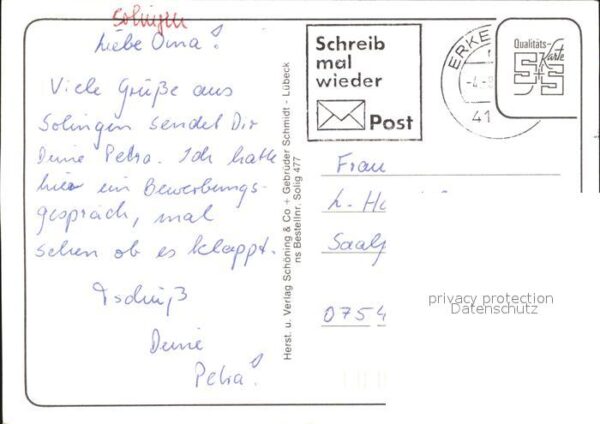 Solingen
Liebe Oma!
Viele Grüße aus
Solingen sendet Dir
Deine Petra. Ich hatte
hier ein Bewerbungs-
gespräch, mal
sehen ob es klappt.
Tschüß
Deine
Petra!
Herst. u. Verlag Schöning & Co + Gebrüder Schmidt - Lübeck
ns Bestellnr. Solig 477
Schreib
mal
wieder
Post
ERKE
41
Qualitäts-
Karte
S+S
Frau
L. Ha
Saalf
0754
privacy protection
Datenschutz